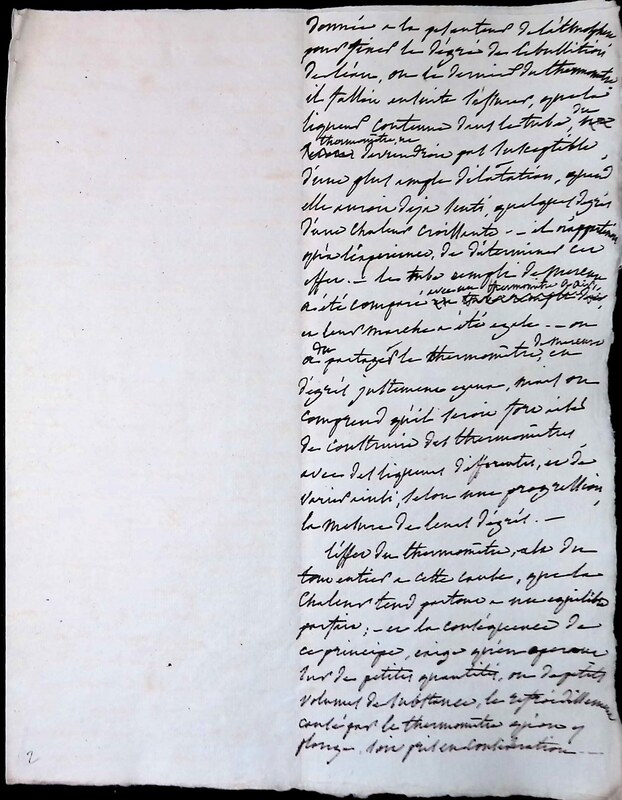 donnée a la pesanteur de l'atmosphere
pour fixer le dégré de l'ebullition
de l'eau, ou le dernier du thermometre
il falloit ensuite s'assurer, que la
liqueur contenue dans le tube, du
thermométre, ne
deviendroit pas susceptible
d'une plus ample dilatation, quand
elle auroit deja senti, quelques degrés
d'une chaleur croissante. -- il n'appartenoit
qu'a l'experience, de déterminer cet
effet. - le tube rempli de mercure
a été comparé avec un thermométre
et leur marche a été egale. -- on
a du partager le thermométre, de mercure en
dégrés justement egaux, mais on
comprend qu'il seroit fort aisé
de construire des thermométres
avec des liqueurs differentes, et de
varier ainsi, selon une progression,
la mesure de leurs degrés. -
l'effet du thermométre, est du
tout entier a cette cause, que la
chaleur tend partout a un equilibre
parfait; - et la conséquence de
ce principe, exige qu'en operant
sur de petites quantités, ou de petits
volumes de substance, le refroidissement
causé par le thermométre qu'on y
plonge, soit pris en consideration --
2